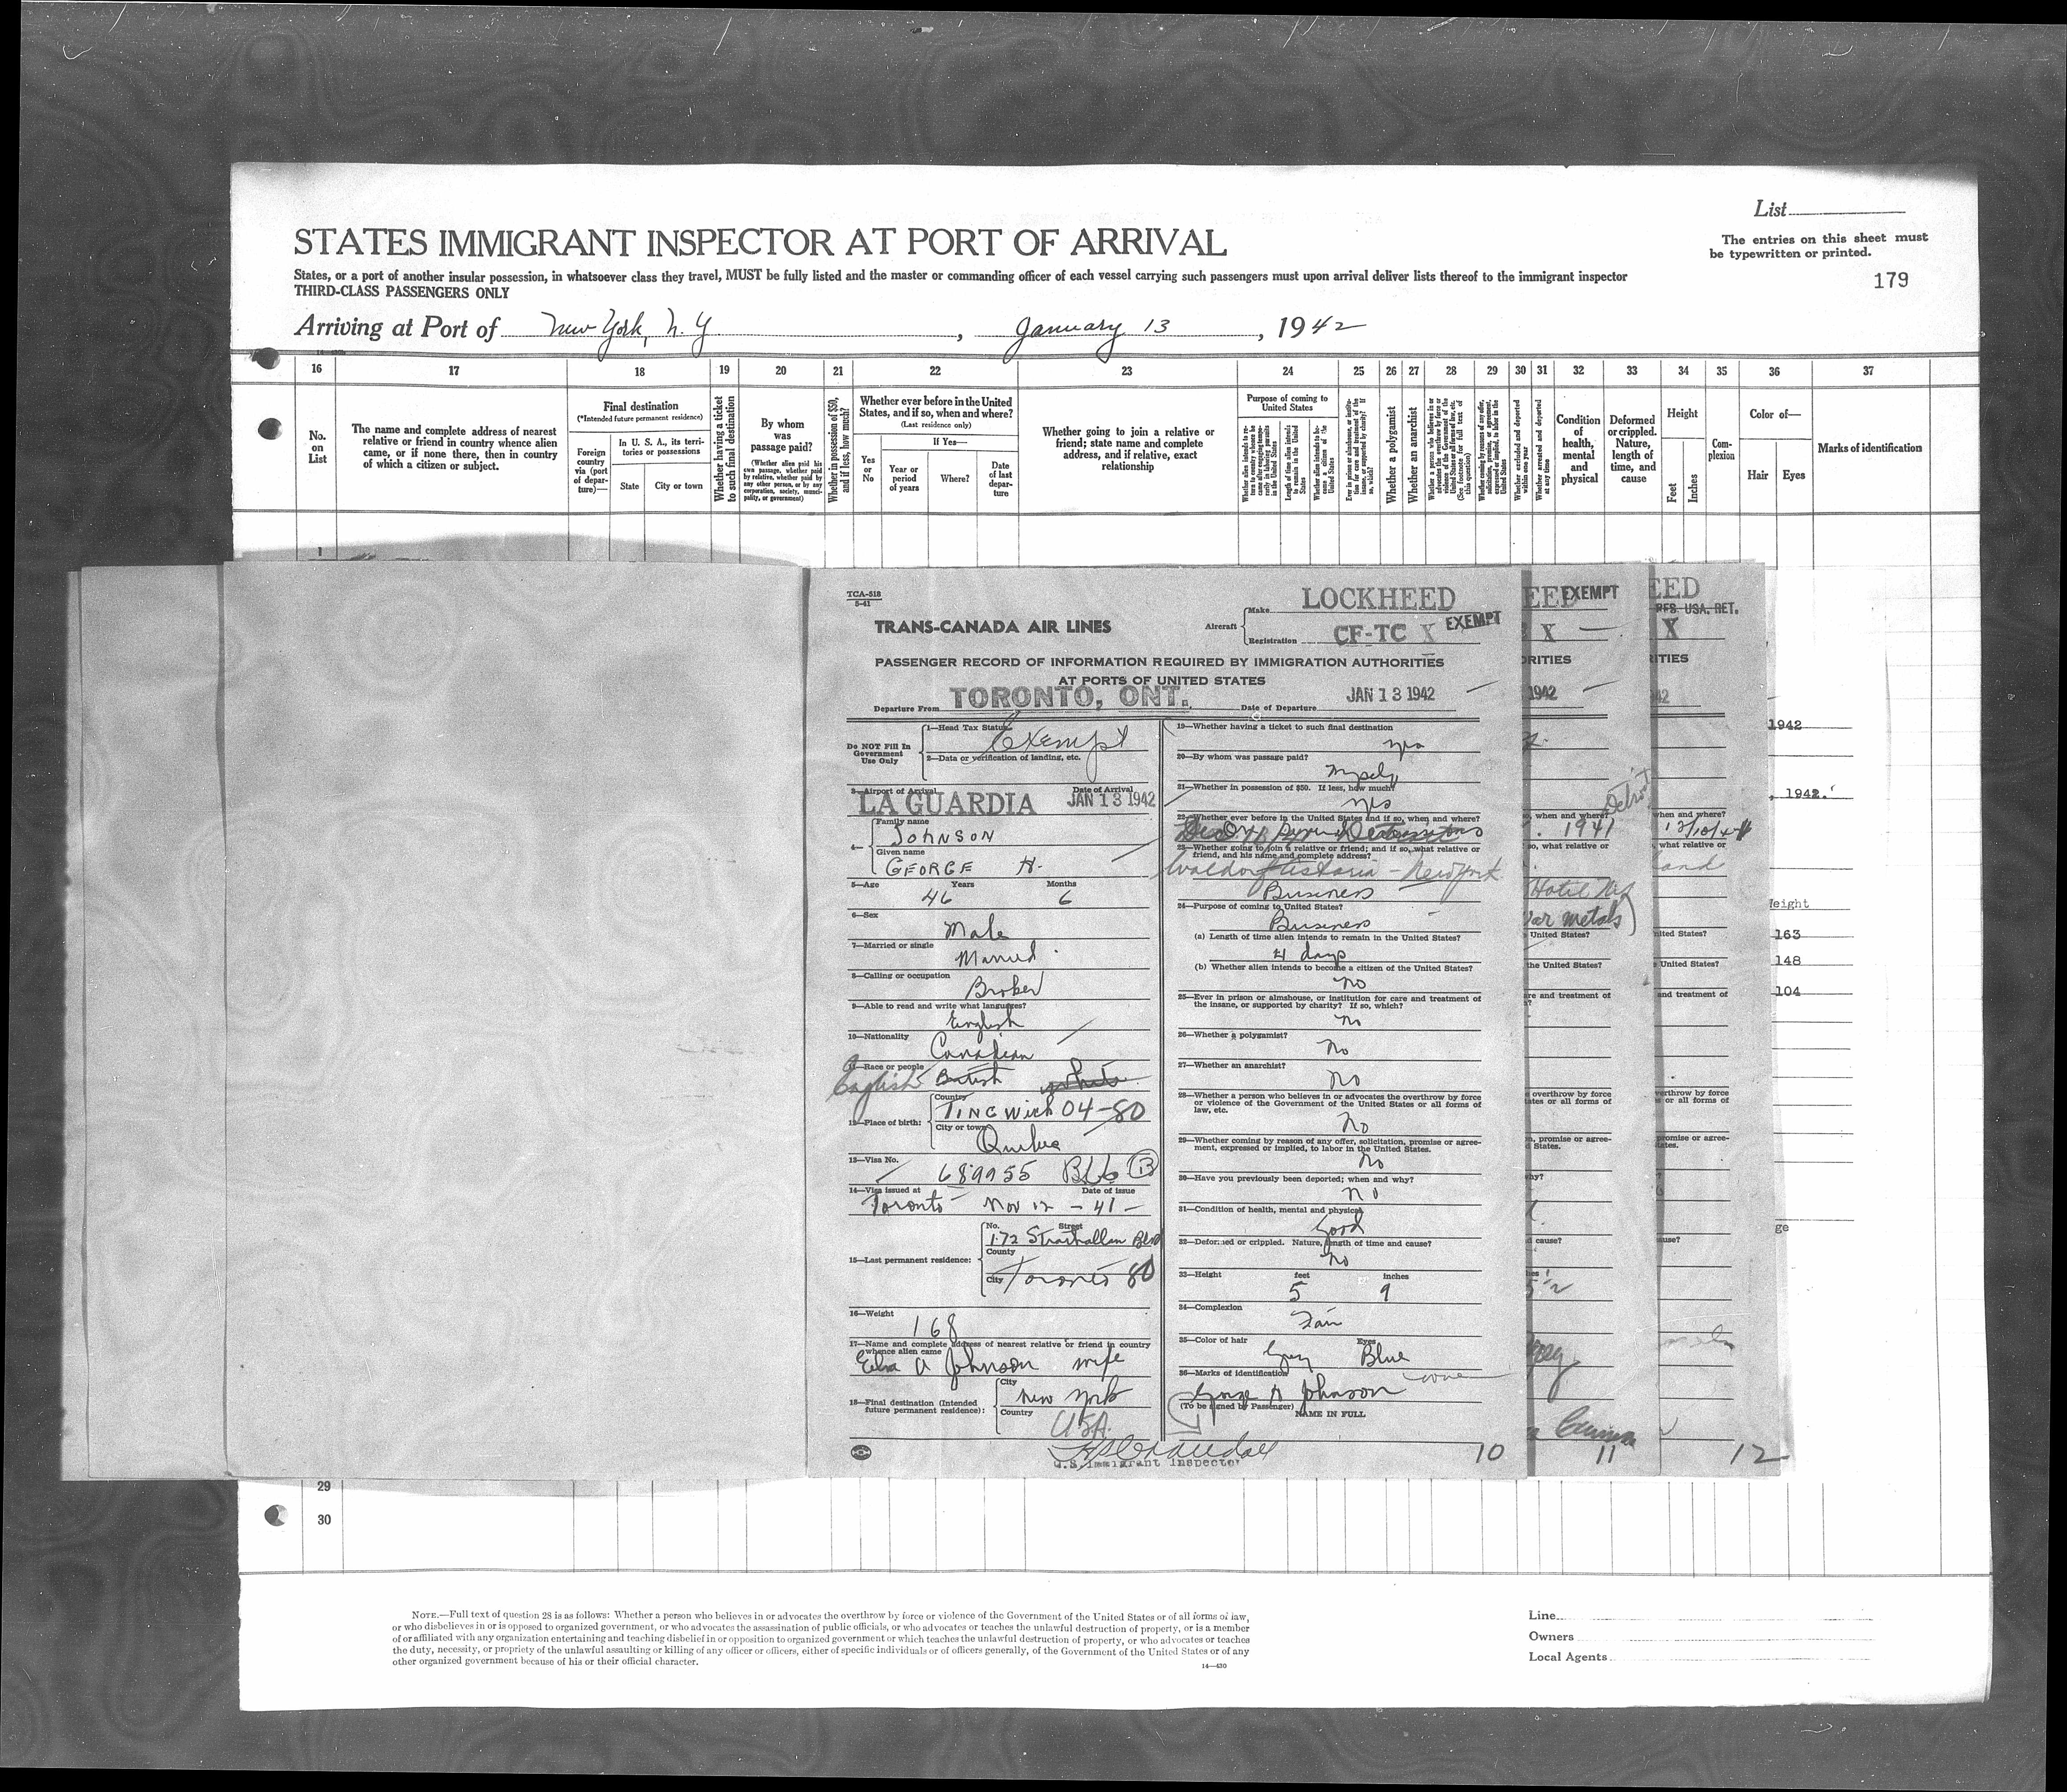 List
STATES IMMIGRANT INSPECTOR AT PORT OF ARRIVAL
The entries on this sheet must
be typewritten or printed.
States, or a port of another insular possession, in whatsoever class they travel, MUST be fully listed and the master or commanding officer of each vessel carrying such passengers must upon arrival deliver lists thereof to the immigrant inspector
THIRD-CLASS PASSENGERS ONLY
179
Arriving at Port of New York, N.Y , January 13 , 1942
16 17 18 19 20 21 22 23 24 25 26 27 28 29 30 31 32 33 34 35 36 37
No. on List
The name and complete address of nearest
relative or friend in country whence alien
came, or if none there, then in country
of which a citizen or subject.
Final destination
(*Intended future permanent residence)
Foreign country via (port of departure)—
In U. S. A., its territories or possessions
State
City or town
Whether having a ticket to such final destination
By whom was passage paid?
(Whether alien paid his own passage, whether paid by relative, whether paid by any other person, or by any corporation, society, municipality, or government)
Whether in possession of $50, and if less, how much?
Whether ever before in the United
States, and if so, when and where?
(Last residence only)
Yes or No
If Yes—
Year or period of years
Where?
Date of last departure
Whether going to join a relative or
friend; state name and complete
address, and if relative, exact
relationship
Purpose of coming to United States
Whether a polygamist
Whether an anarchist
Condition of health, mental and physical
Deformed or crippled. Nature, length of time, and cause
Height
Feet
Inches
Complexion
Color of—
Hair
Eyes
Marks of identification
1
TCA-518
5-41
TRANS-CANADA AIR LINES
Aircraft
Make LOCKHEED
Registration CF-TC X EXEMPT
PASSENGER RECORD OF INFORMATION REQUIRED BY IMMIGRATION AUTHORITIES
AT PORTS OF UNITED STATES
Departure From TORONTO, ONT. Date of Departure JAN 13 1942
Do NOT Fill In
Government
Use Only
1—Head Tax Status Exempt
2—Data or verification of landing, etc.
3—Airport of Arrival LA GUARDIA Date of Arrival JAN 13 1942
4— Family name JOHNSON
Given name GEORGE H.
5—Age Years 46 Months 6
6—Sex Male
7—Married or single Married
8—Calling or occupation Broker
9—Able to read and write what languages? English
10—Nationality Canadian
11—Race or people English British white
12—Place of birth: Country TINGWICK 04-80
City or town Quebec
13—Visa No. 689955 B
14—Visa issued at Toronto Date of issue Nov 12 - 41 -
15—Last permanent residence: No. Street 172 Strathallan Blvd
County
City Toronto 80
16—Weight 168
17—Name and complete address of nearest relative or friend in country
whence alien came
A Johnson wife
18—Final destination (Intended
future permanent residence): City New York
Country USA.
19—Whether having a ticket to such final destination
yes
20—By whom was passage paid?
Myself
21—Whether in possession of $50. If less, how much?
yes
22—Whether ever before in the United States and if so, when and where?
23—Whether going to join a relative or friend; and if so, what relative or
friend, and his name and complete address?
Waldorf Astoria - New York
Business
24—Purpose of coming to United States?
Business
(a) Length of time alien intends to remain in the United States?
4 days
(b) Whether alien intends to become a citizen of the United States?
no
25—Ever in prison or almshouse, or institution for care and treatment of
the insane, or supported by charity? If so, which?
No
26—Whether a polygamist?
No
27—Whether an anarchist?
No
28—Whether a person who believes in or advocates the overthrow by force
or violence of the Government of the United States or all forms of
law, etc.
No
29—Whether coming by reason of any offer, solicitation, promise or agree-
ment, expressed or implied, to labor in the United States.
No
30—Have you previously been deported; when and why?
No
31—Condition of health, mental and physical
Good
32—Deformed or crippled. Nature, length of time and cause?
No
33—Height feet 5 inches 9
34—Complexion
Fair
35—Color of hair Grey Eyes Blue
36—Marks of identification none
George H Johnson
(To be signed by Passenger) NAME IN FULL
U.S. Immigrant Inspector
10
EED EXEMPT
X
ORITIES
1942
Detroit
so, when and where?
1941
so, what relative or
Hotel
War metals)
United States?
the United States?
11
EED
RFS USA. RET.
X
ITIES
42
when and where?
, what relative or
and
United States?
United States?
and treatment of
12
1942
, 1942.
eight
163
148
104
ge
29
30
NOTE.—Full text of question 28 is as follows: Whether a person who believes in or advocates the overthrow by force or violence of the Government of the United States or of all forms of law,
or who disbelieves in or is opposed to organized government, or who advocates the assassination of public officials, or who advocates or teaches the unlawful destruction of property, or is a member
of or affiliated with any organization entertaining and teaching disbelief in or opposition to organized government or which teaches the unlawful destruction of property, or who advocates or teaches
the duty, necessity, or propriety of the unlawful assaulting or killing of any officer or officers, either of specific individuals or of officers generally, of the Government of the United States or of any
other organized government because of his or their official character.
14—430
Line
Owners
Local Agents